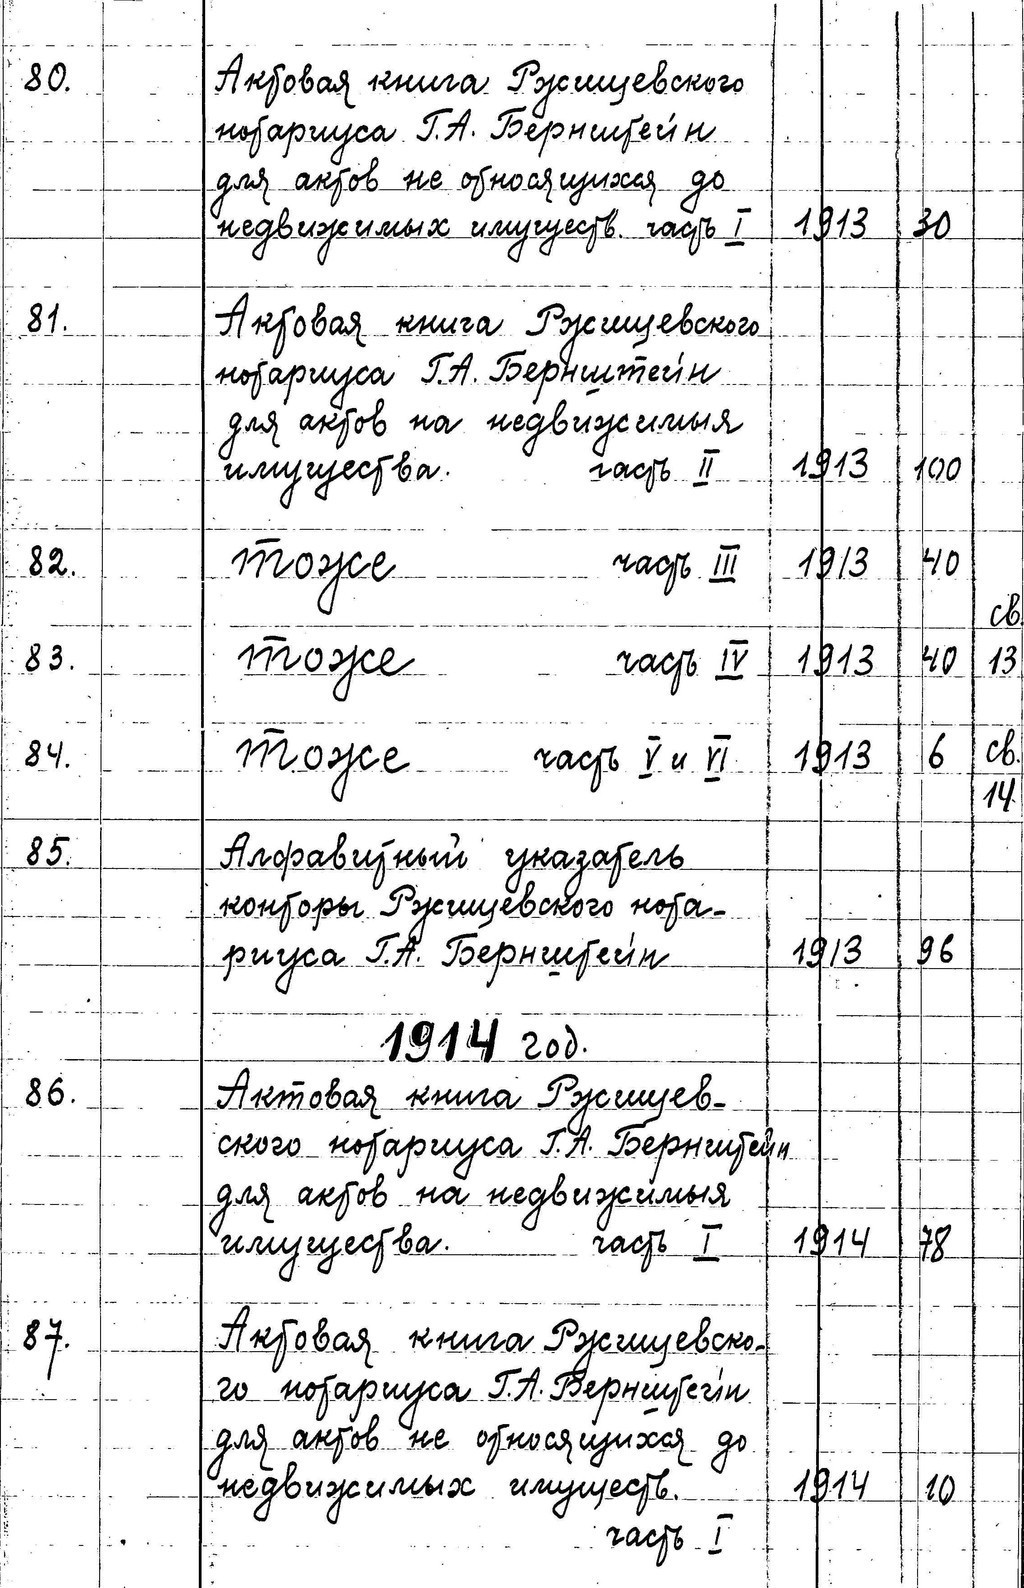 80. Актовая книга Ржищевского
нотариуса Г.А. Бернштейн
для актов не относящихся до
недвижимых имуществ. часть I 1913 30
81. Актовая книга Ржищевского
нотариуса Г.А. Бернштейн
для актов на недвижимыя
имущества. часть II 1913 100
82. Тоже часть III 1913 40
св.
83. Тоже часть IV 1913 40 13
84. Тоже часть V и VI 1913 6 св.
14.
85. Алфавитный указатель
конторы Ржищевского нота-
риуса Г.А. Бернштейн 1913 96
1914 год.
86. Актовая книга Ржищев-
ского нотариуса Г.А. Бернштейн
для актов на недвижимыя
имущества. часть I 1914 78
87. Актовая книга Ржищевско-
го нотариуса Г.А. Бернштейн
для актов не относящихся до
недвижимых имуществ. 1914 10
часть I